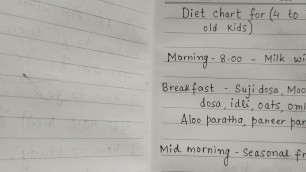 Diet chart for (4 to
old kids)
Morning - 8.00 - Milk
Breakfast - Suji dosa,
dosa, idli, oats,
Aloo paratha, paneer
Mid morning - Seasonal